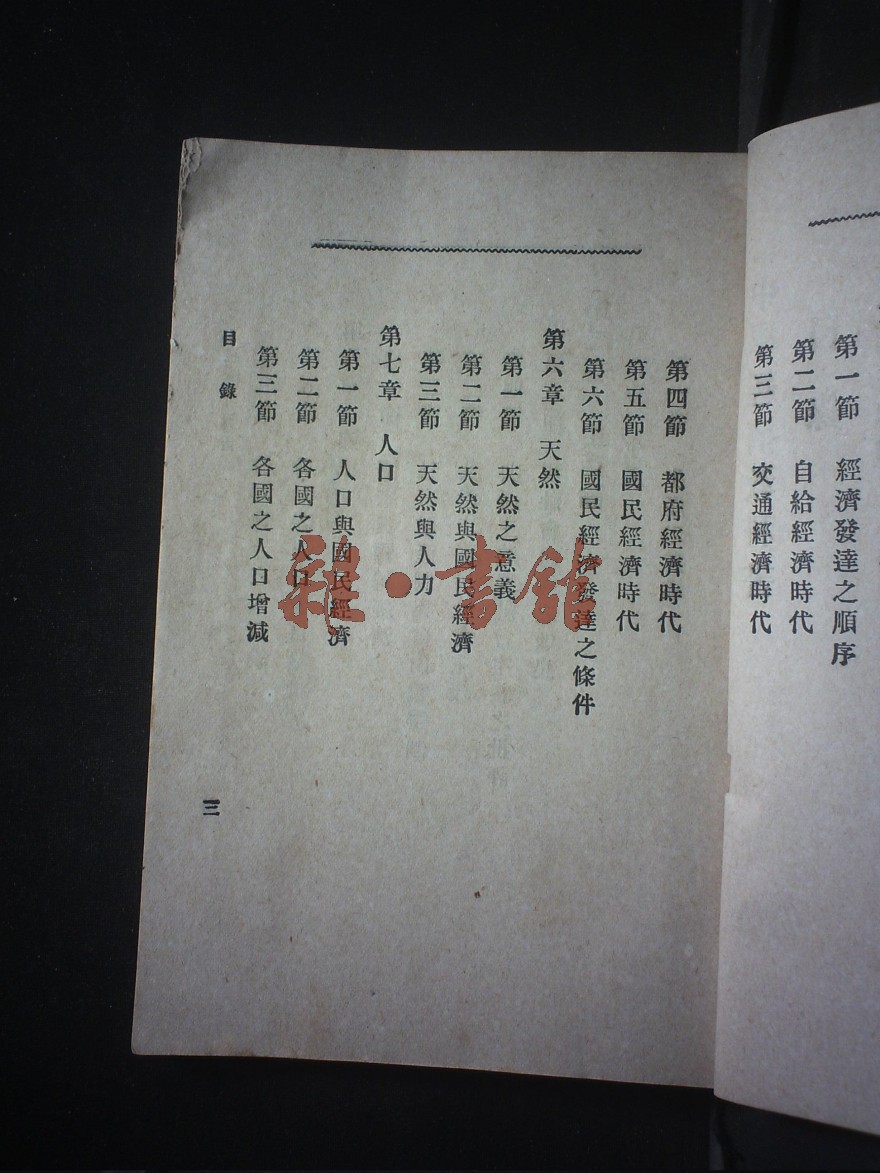 第一節 經濟發達之順序
第二節 自給經濟時代
第三節 交通經濟時代
第四節 都府經濟時代
第五節 國民經濟時代
第六節 國民經濟發達之條件
第六章 天然
第一節 天然之意義
第二節 天然與國民經濟
第三節 天然與人力
第七章 人口
第一節 人口與國民經濟
第二節 各國之人口
第三節 各國之人口增減
目錄
三
雜·書館